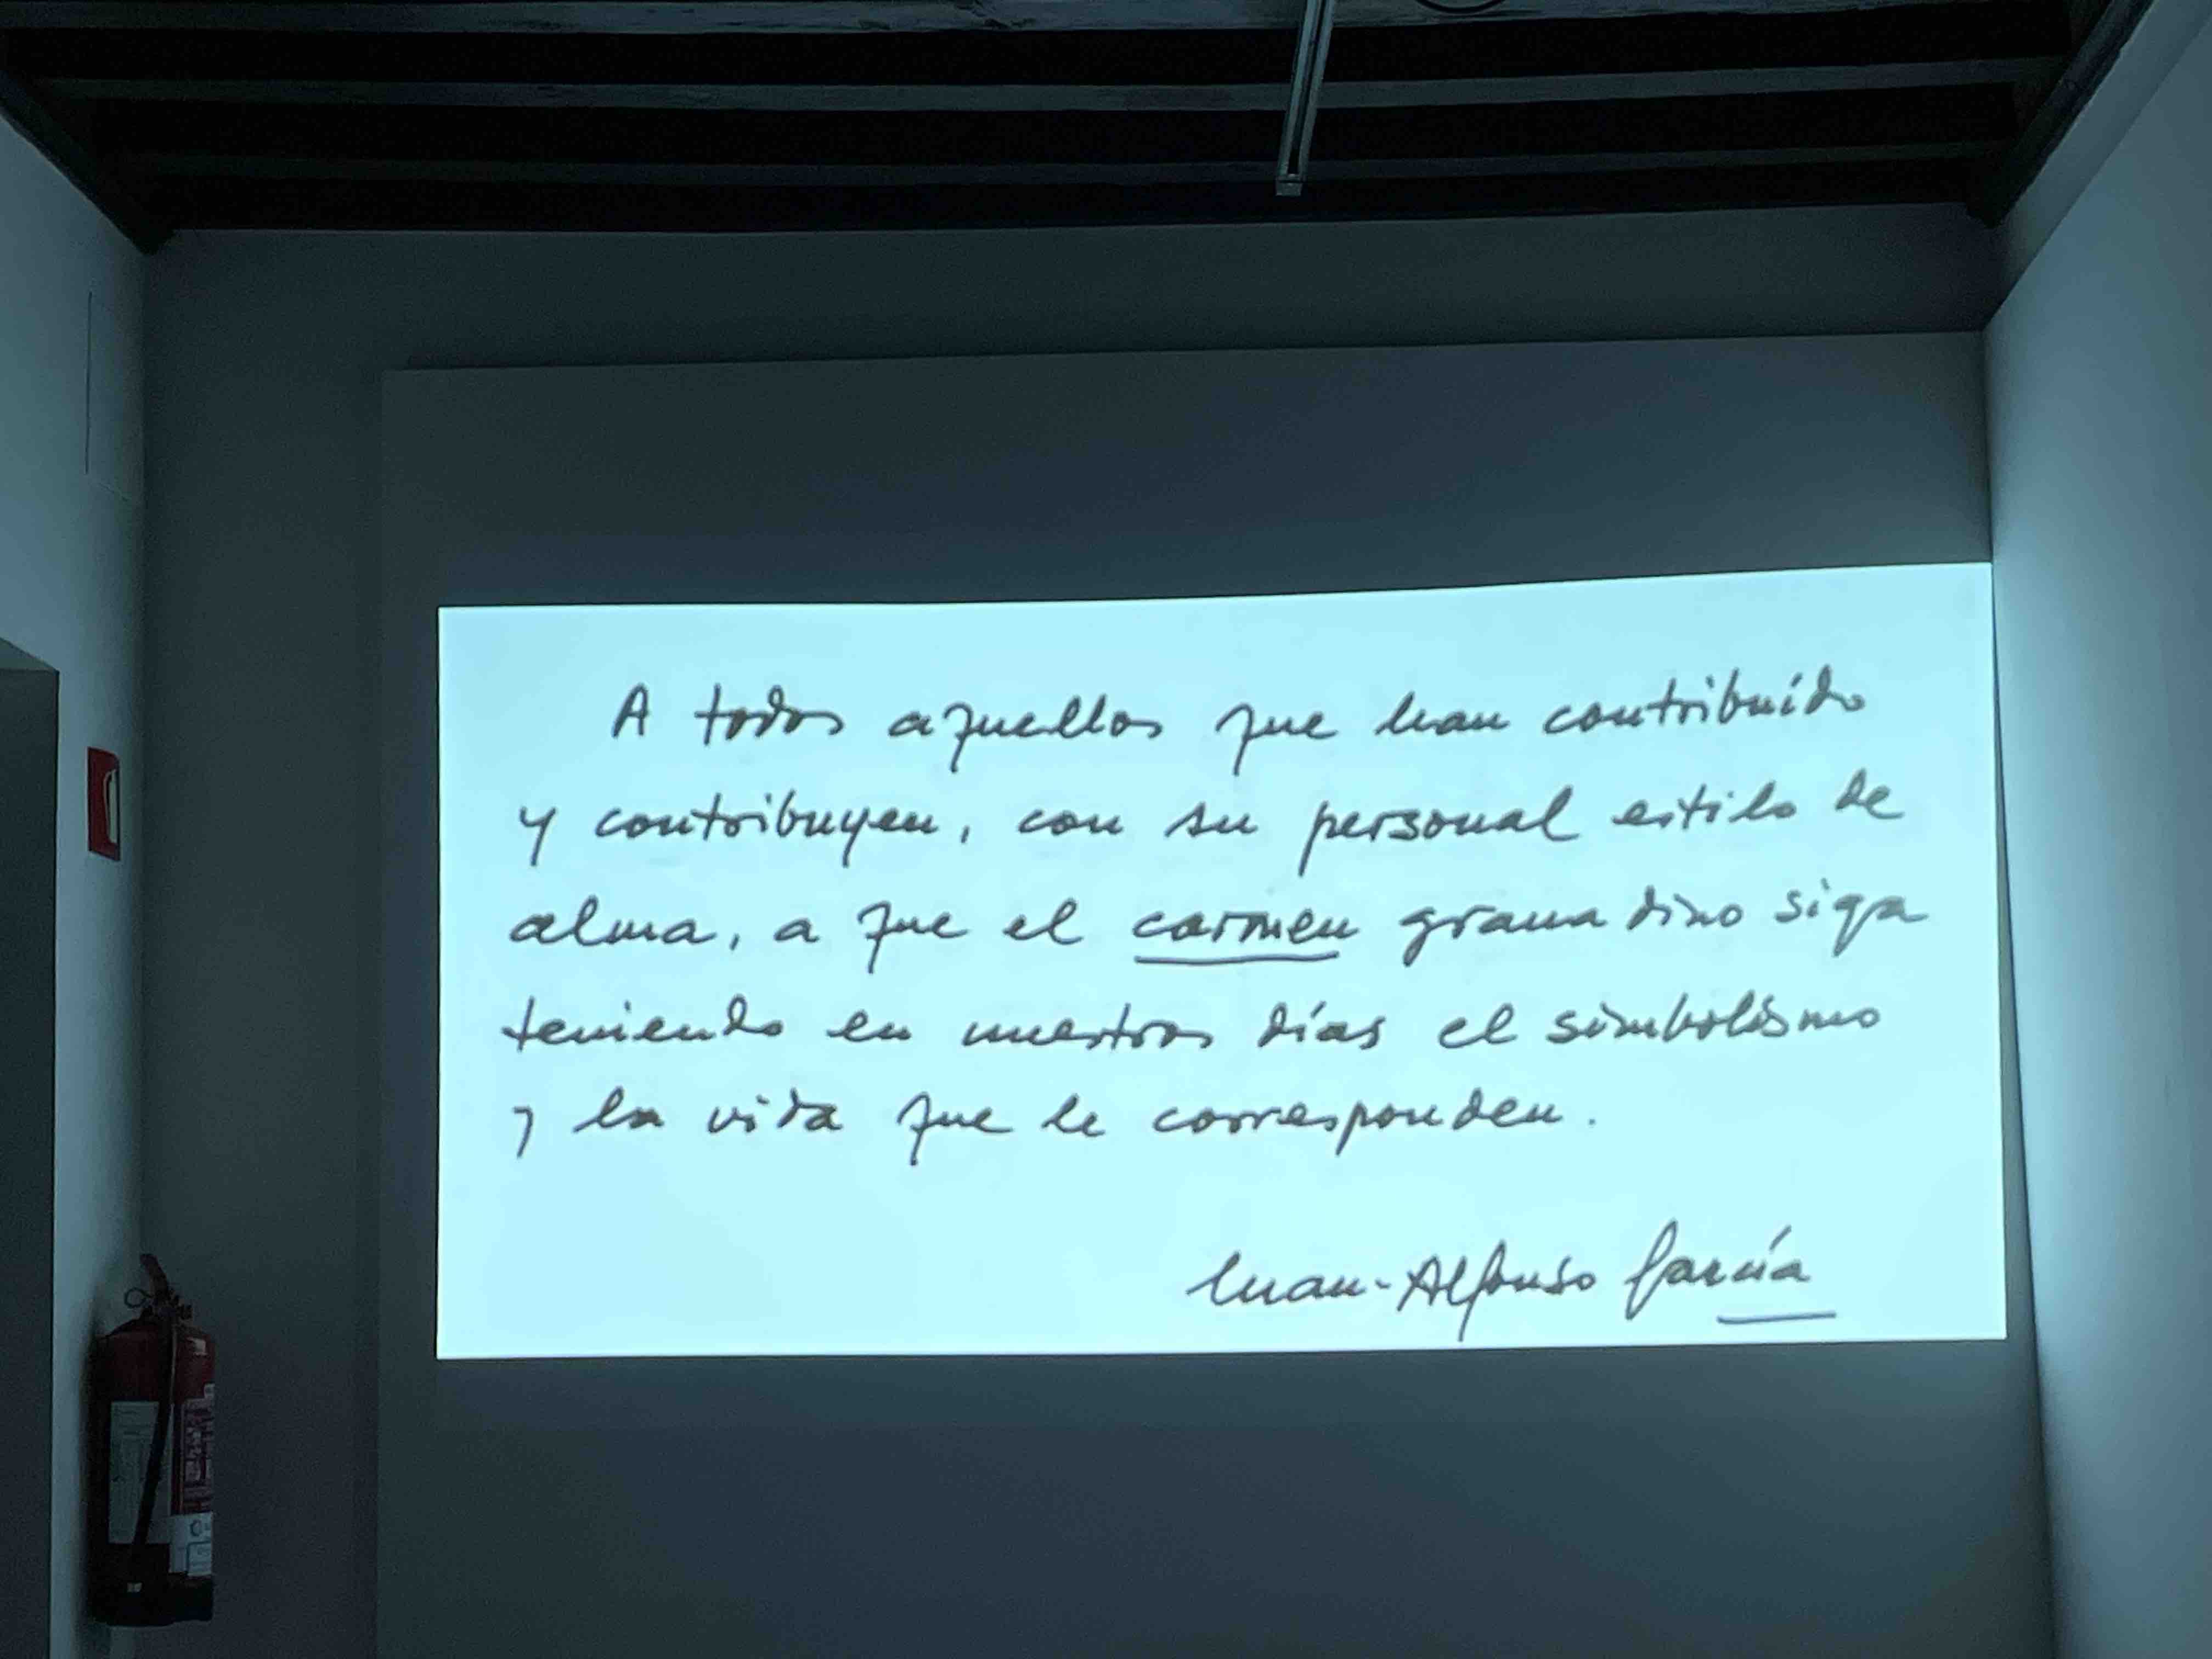 A todos aquellos que han contribuído
y contribuyen, con su personal estilo de
alma, a que el carmen granadino siga
teniendo en nuestros días el simbolismo
y la vida que le corresponden.
Juan-Alfonso García